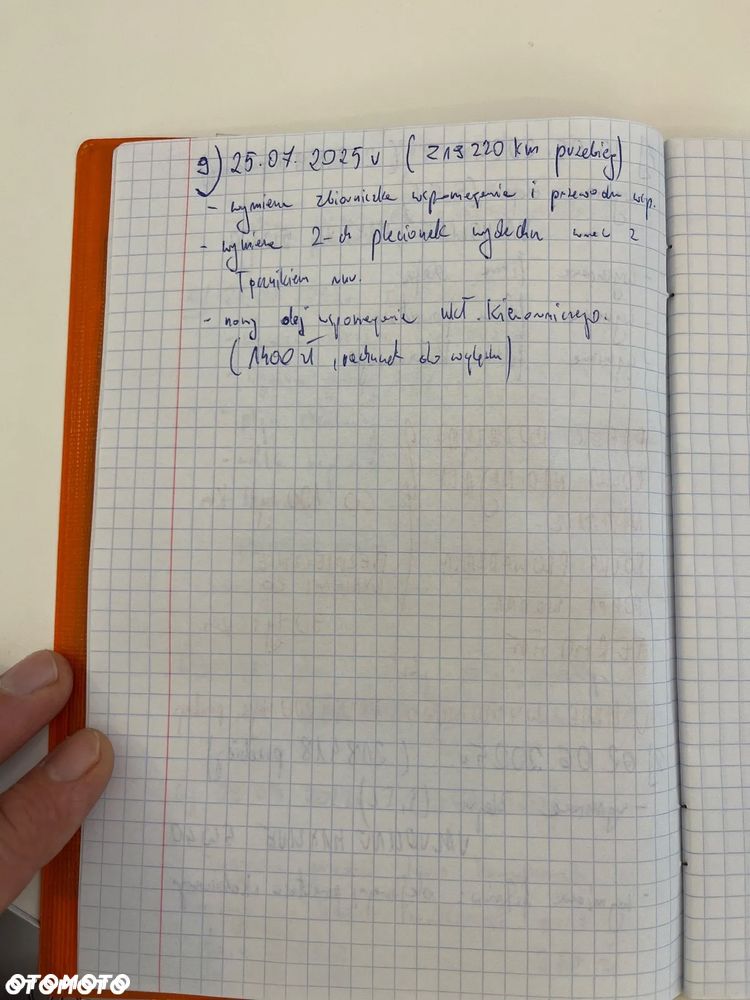 9) 25.07.2025 r (219220 km przebieg)
- wymiana zbiorniczka wspomagania i przewodu wsp.
- wymiana 2-ch plecionek wydechu wraz z
Tłumikiem
- nowy olej wspomagania ukł. kierowniczego.
(1400 zł, rachunek do wglądu)
OTOMOTO